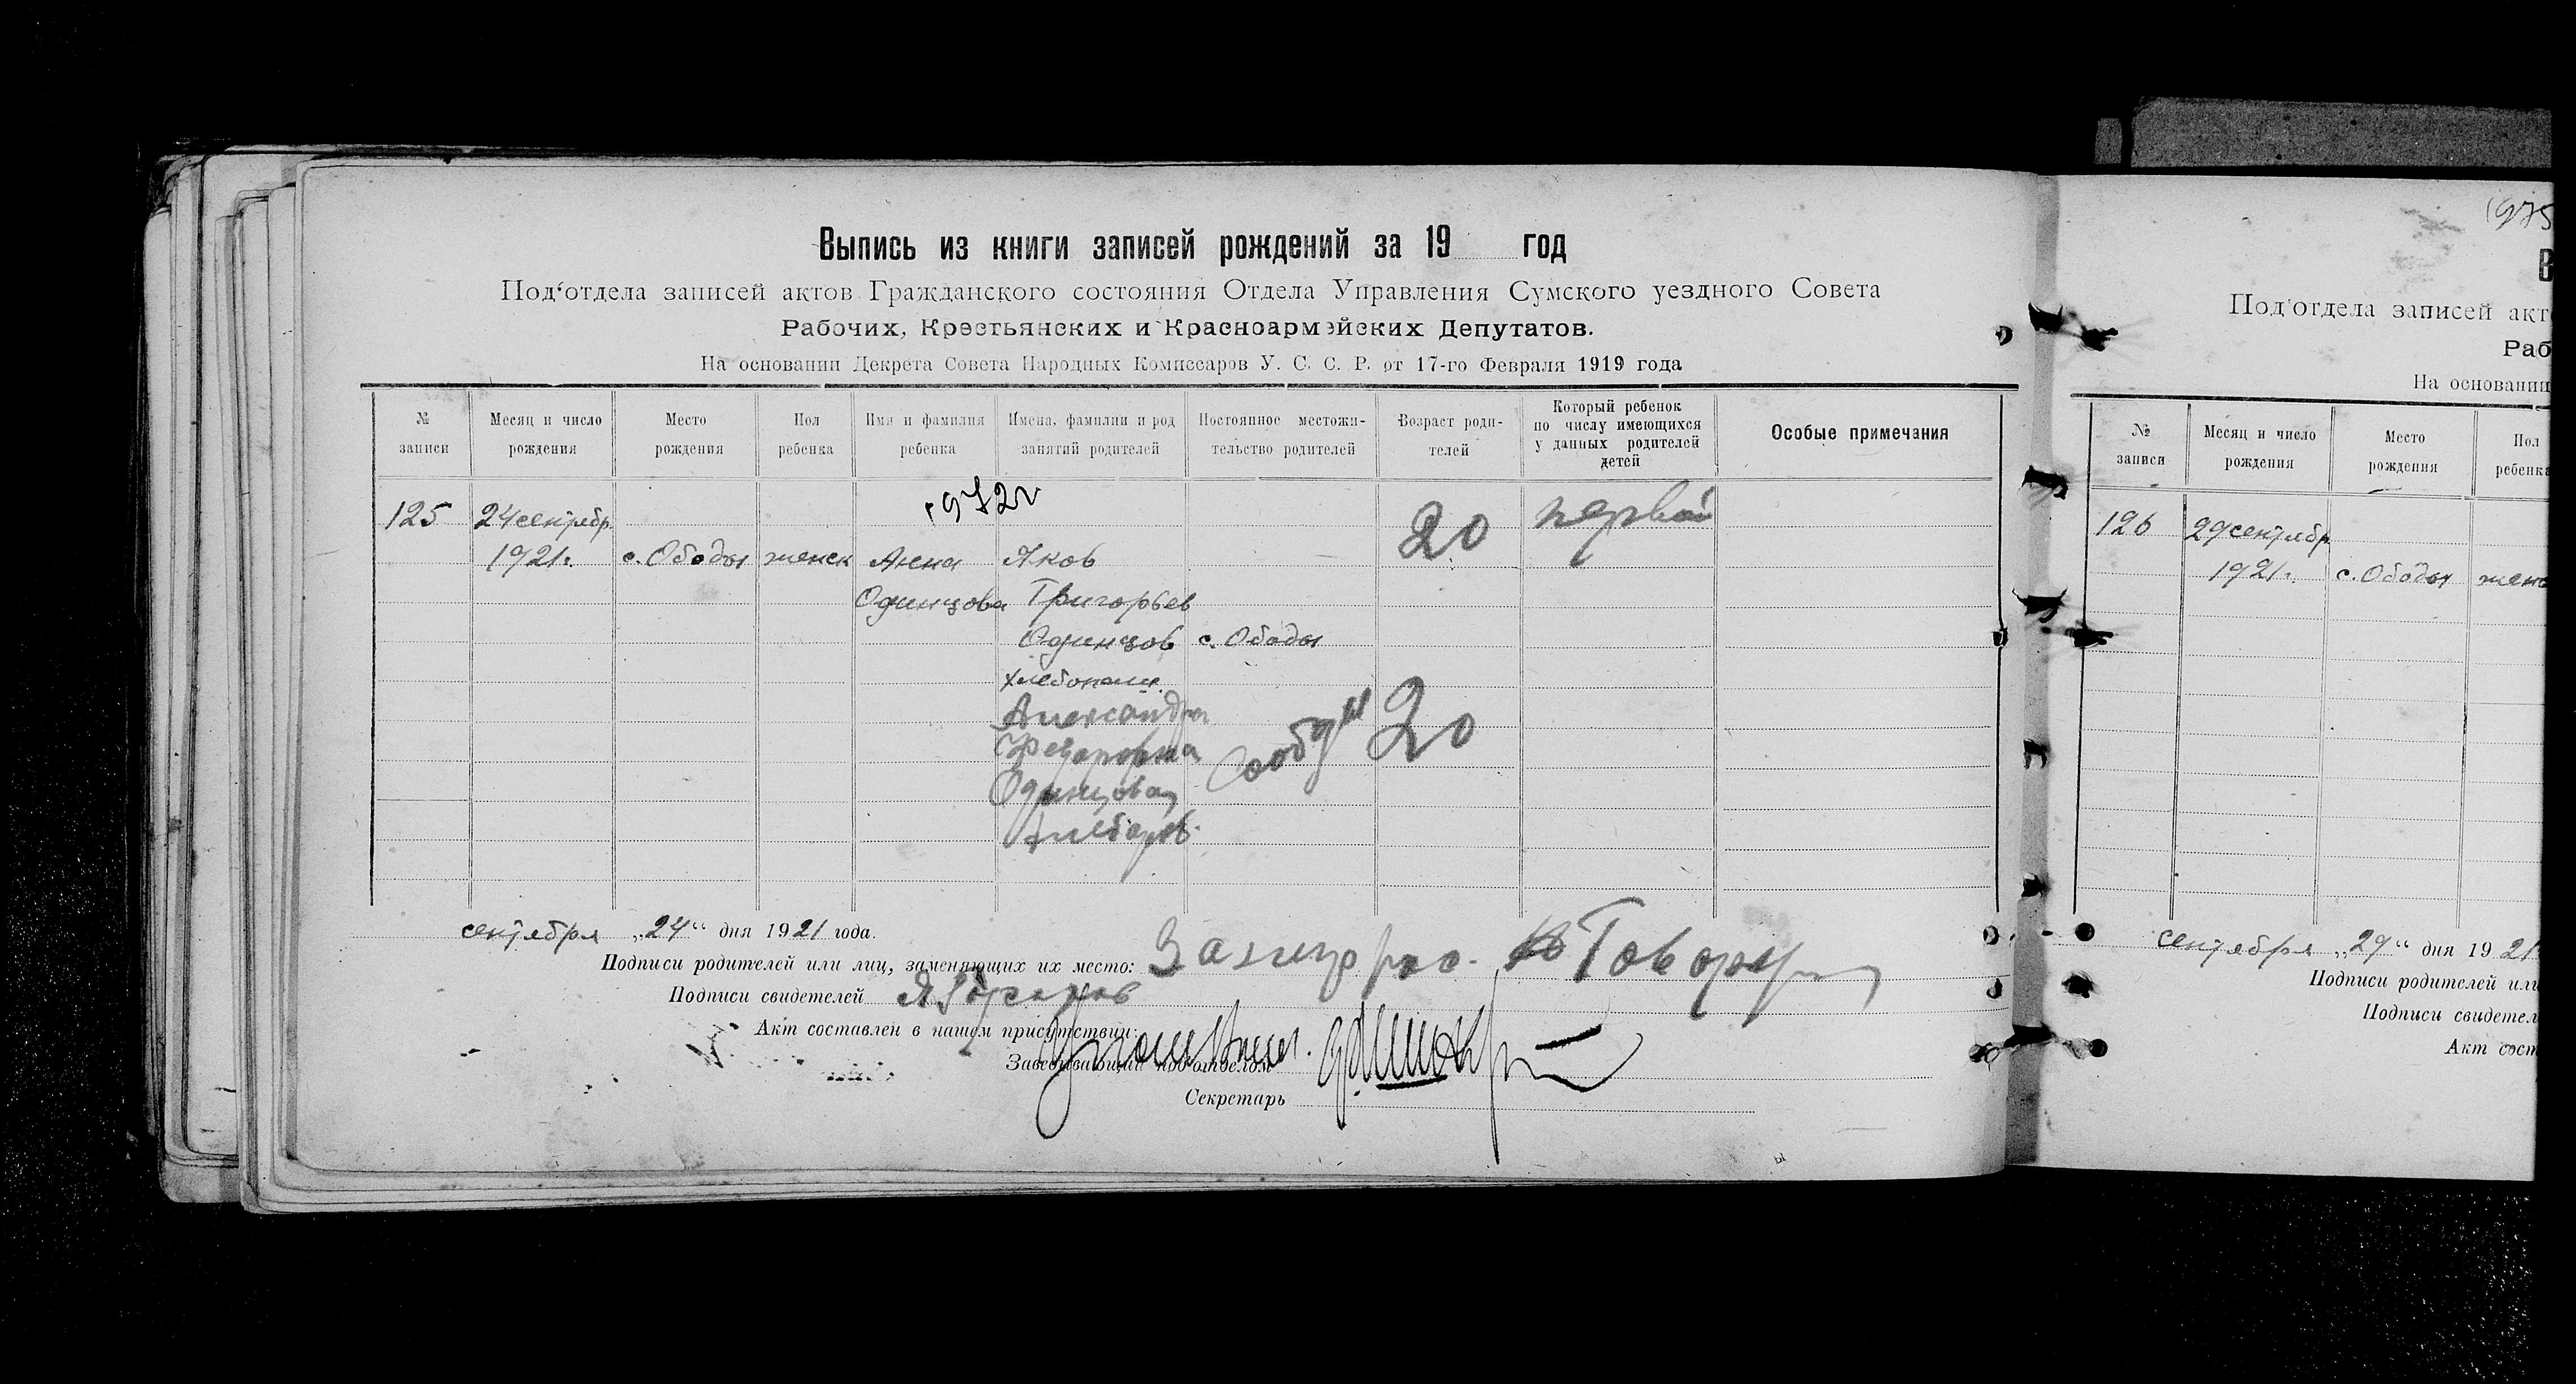 Выпись из книги записей рождений за 19 год
Под‘отдела записей актов Гражданского состояния Отдела Управления Сумского уездного Совета
Рабочих, Крестьянских и Красноармейских Депутатов.
На основании Декрета Совета Народных Комиссаров У. С. С. Р. от 17-го Февраля 1919 года
№ записи
Месяц и число рождения
Место рождения
Пол ребенка
Имя и фамилия ребенка
Имена, фамилии и род занятий родителей
Постоянное местожительство родителей
Возраст родителей
Который ребенок по числу имеющихся у данных родителей детей
Особые примечания
125
24 сентябр.
1921г.
с. Ободы
женск
Анна
Одинцова
Яков
Григорьев
Одинцов
хлебопаш.
с. Ободы
20
первой
Александра
Федоровна
Одинцова
20
сентября „24“ дня 1921 года.
Подписи родителей или лиц, заменяющих их место:
Подписи свидетелей
Акт составлен в нашем присутствии:
Заведывающий под‘отделом
Секретарь
(975
В
Под‘отдела записей акт
Раб
На основании
№ записи
Месяц и число рождения
Место рождения
Пол ребенка
126
29 сентябр.
1921г.
с. Ободы
женс
сентября „29“ дня 1921
Подписи родителей или
Подписи свидетел
Акт сост